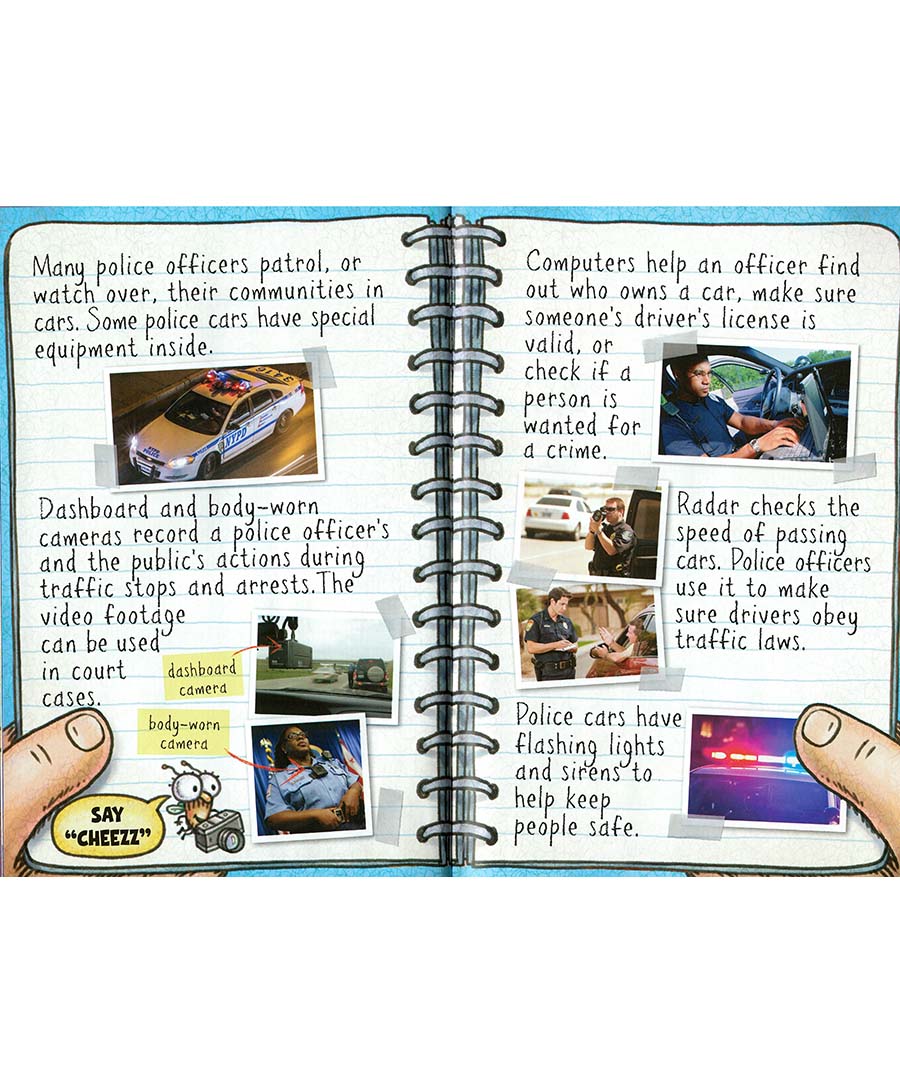 Many police officers patrol, or
watch over, their communities in
cars. Some police cars have special
equipment inside.
NYPD
Dashboard and body-worn
cameras record a police officer's
and the public's actions during
traffic stops and arrests. The
video footage
can be used
in court
cases.
dashboard
camera
body-worn
camera
SAY
"CHEEZZ"
Computers help an officer find
out who owns a car, make sure
someone's driver's license is
valid, or
check if a
person is
wanted for
a crime.
Radar checks the
speed of passing
cars. Police officers
use it to make
sure drivers obey
traffic laws.
Police cars have
flashing lights
and sirens to
help keep
people safe.